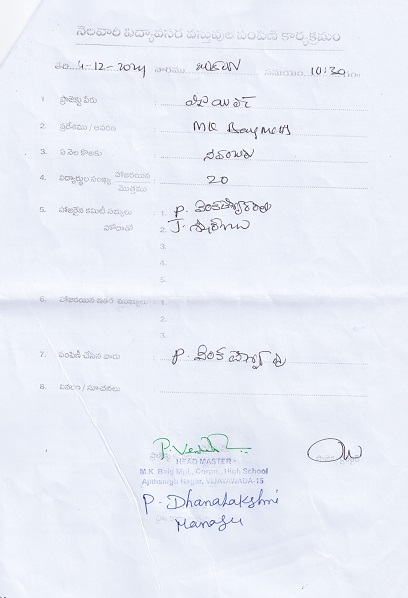 నెలవారి విద్యావసర వస్తువుల పంపిణి కార్యక్రమం
తేది 4-12-2024 వారము సమయం 10:30
1. ప్రాజెక్టు పేరు :
2. ప్రదేశము / ఆవరణ : MK Baig MCHS
3. ఏ నెల కొఱకు : నవంబరు
4. విద్యార్థుల సంఖ్య హాజరయిన : 20
మొత్తము
5. హాజరైన కమిటీ సభ్యులు : 1. P. వెంకటేశ్వరరావు
హోదాతో 2. J.
3.
4.
5.
6. హాజరయిన ఇతర ముఖ్యులు : 1.
2.
3.
7. పంపిణీ చేసిన వారు : P. వెంకటేశ్వర్లు
8. వివరణ / సూచనలు :
HEAD MASTER
M.K. Baig Mpl. Corpn. High School
Ajithsingh Nagar, VIJAYAWADA-15
P. Dhanalakshmi
Manager